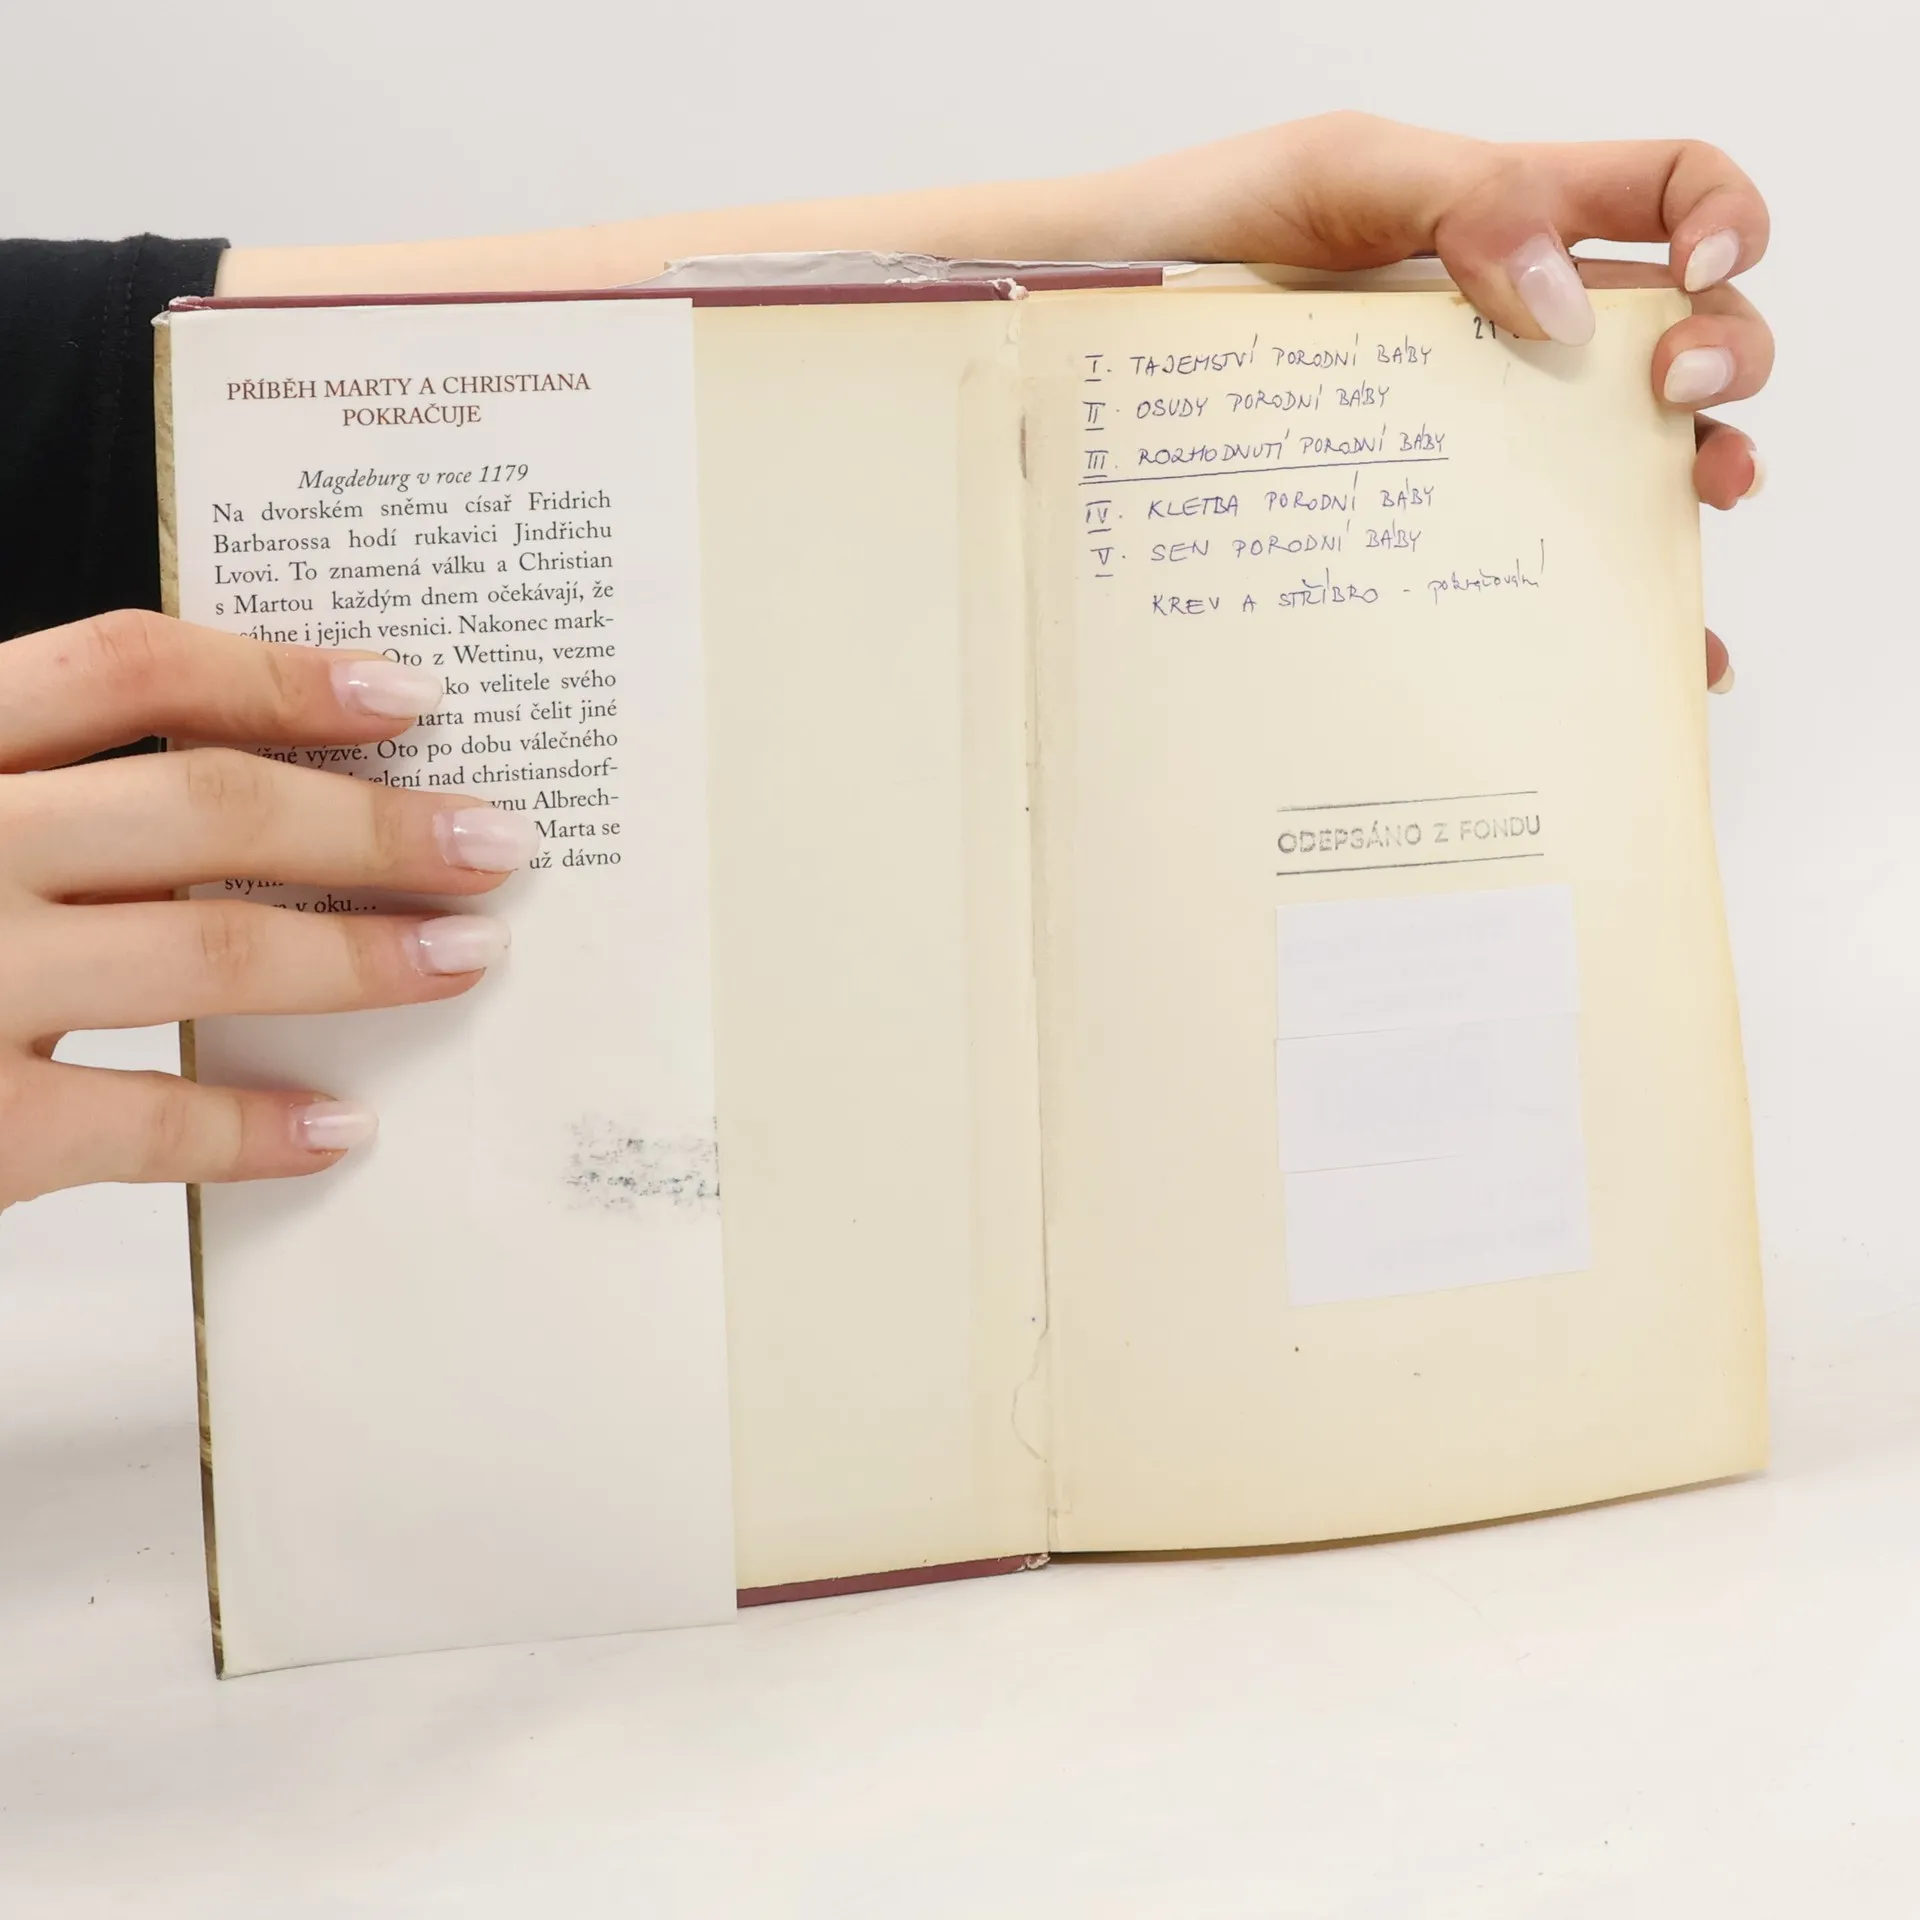 PŘÍBĚH MARTY A CHRISTIANA
POKRAČUJE
Magdeburg v roce 1179
Na dvorském sněmu císař Fridrich
Barbarossa hodí rukavici Jindřichu
Lvovi. To znamená válku a Christian
s Martou každým dnem očekávají, že
i jejich vesnici. Nakonec mark-
Oto z Wettinu, vezme
velitele svého
musí čelit jiné
výzvě. Oto po dobu válečného
nad christiansdorf-
Albrech-
Marta se
už dávno
v oku...
I. TAJEMSTVÍ PORODNÍ BÁBY
II. OSUDY PORODNÍ BÁBY
III. ROZHODNUTÍ PORODNÍ BÁBY
IV. KLETBA PORODNÍ BÁBY
V. SEN PORODNÍ BÁBY
KREV A STŘÍBRO - pokračování
21
ODEPSÁNO Z FONDU